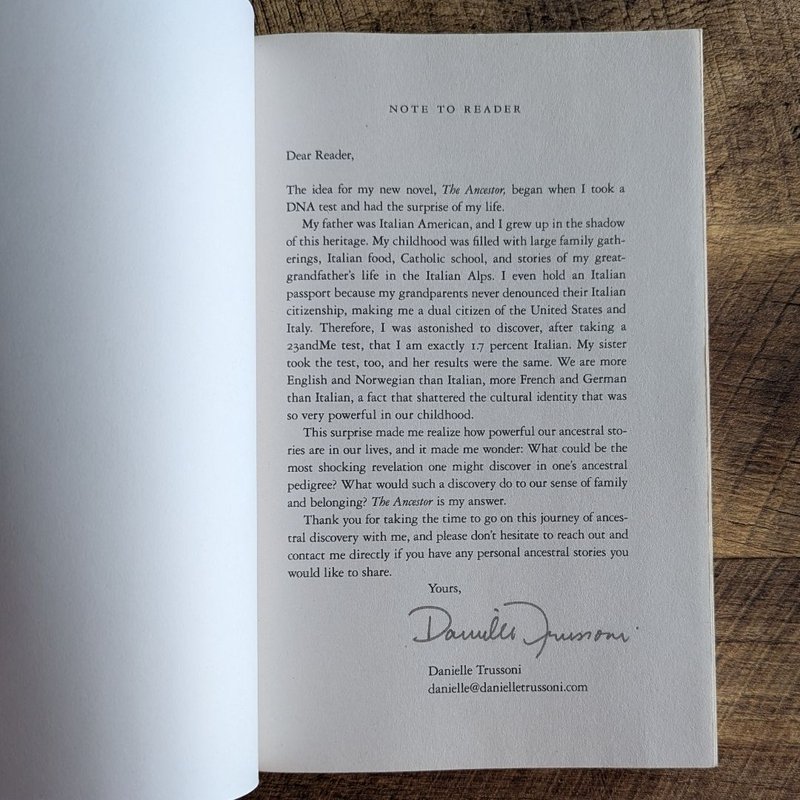 NOTE TO READER
Dear Reader,
The idea for my new novel, The Ancestor, began when I took a
DNA test and had the surprise of my life.
My father was Italian American, and I grew up in the shadow
of this heritage. My childhood was filled with large family gath-
erings, Italian food, Catholic school, and stories of my great-
grandfather's life in the Italian Alps. I even hold an Italian
passport because my grandparents never denounced their Italian
citizenship, making me a dual citizen of the United States and
Italy. Therefore, I was astonished to discover, after taking a
23andMe test, that I am exactly 1.7 percent Italian. My sister
took the test, too, and her results were the same. We are more
English and Norwegian than Italian, more French and German
than Italian, a fact that shattered the cultural identity that was
so very powerful in our childhood.
This surprise made me realize how powerful our ancestral sto-
ries are in our lives, and it made me wonder: What could be the
most shocking revelation one might discover in one's ancestral
pedigree? What would such a discovery do to our sense of family
and belonging? The Ancestor is my answer.
Thank you for taking the time to go on this journey of ances-
tral discovery with me, and please don't hesitate to reach out and
contact me directly if you have any personal ancestral stories you
would like to share.
Yours,
Danielle Trussoni
Danielle Trussoni
danielle@danielletrussoni.com